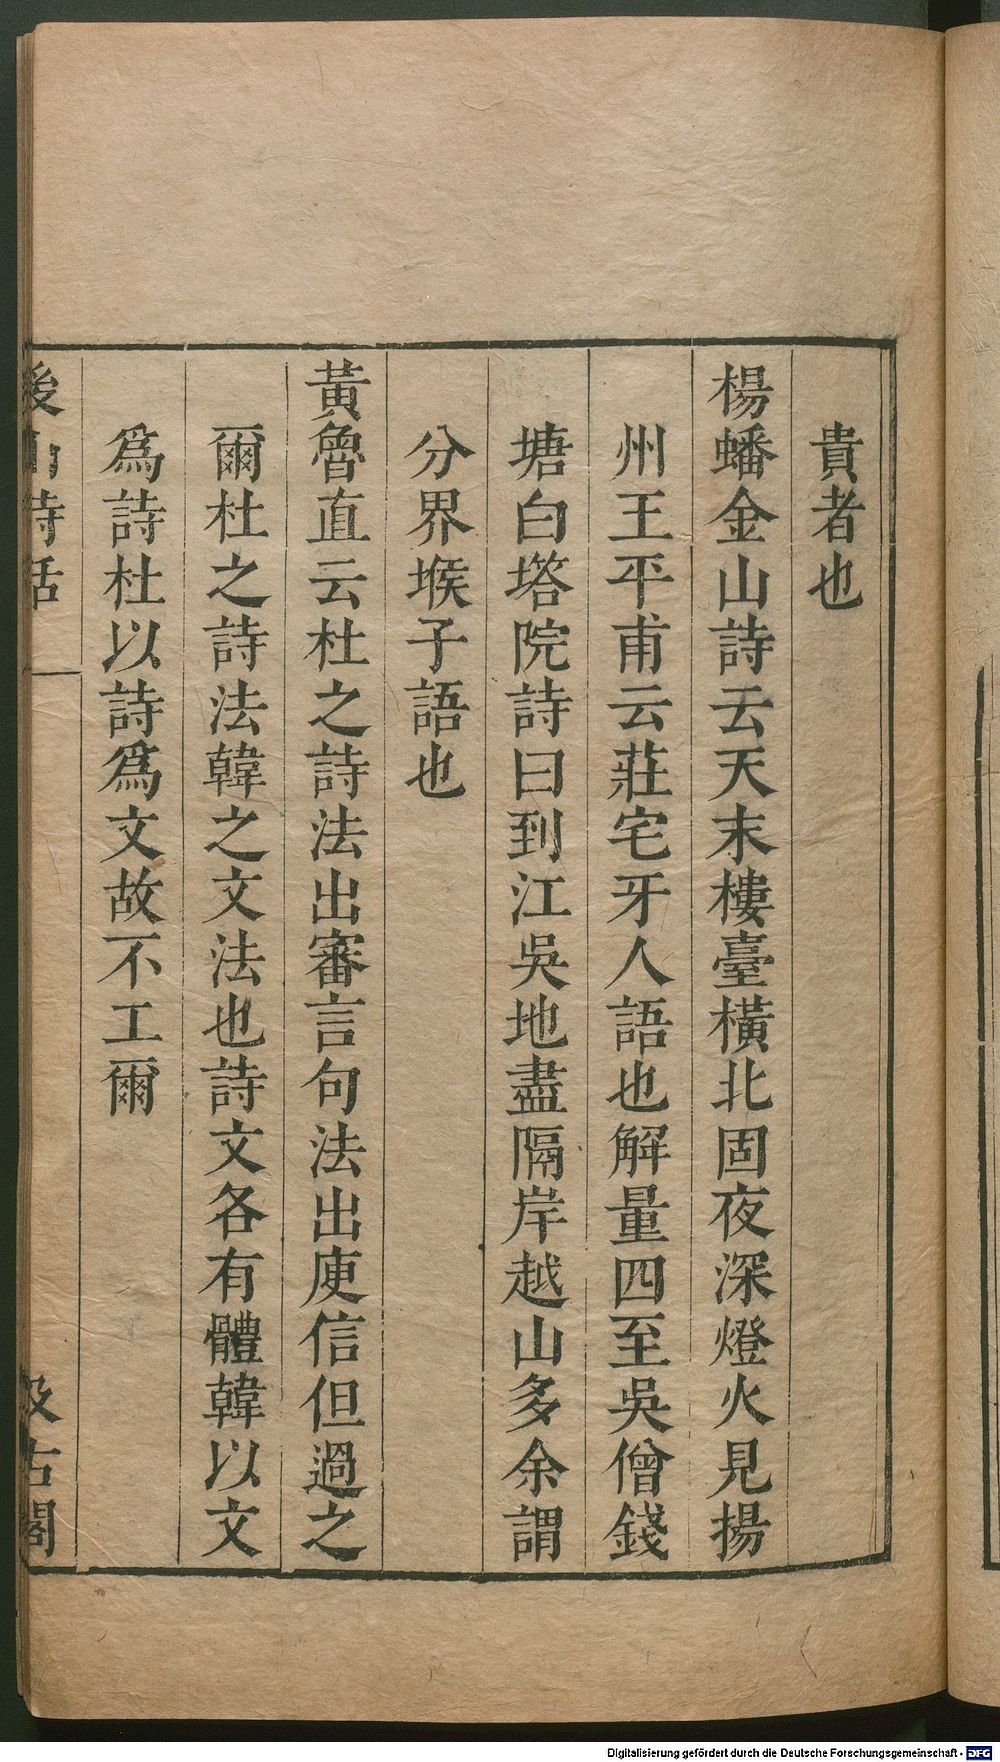 貴者也
楊蟠金山詩云天末樓臺橫北固夜深燈火見揚
州王平甫云莊宅牙人語也解量四至吳僧錢
塘白塔院詩曰到江吳地盡隔岸越山多余謂
分界堠子語也
黃魯直云杜之詩法出審言句法出庾信但過之
爾杜之詩法韓之文法也詩文各有體韓以文
為詩杜以詩為文故不工爾
後山詩話 一 汲古閣
Digitalisierung gefördert durch die Deutsche Forschungsgemeinschaft - DFG